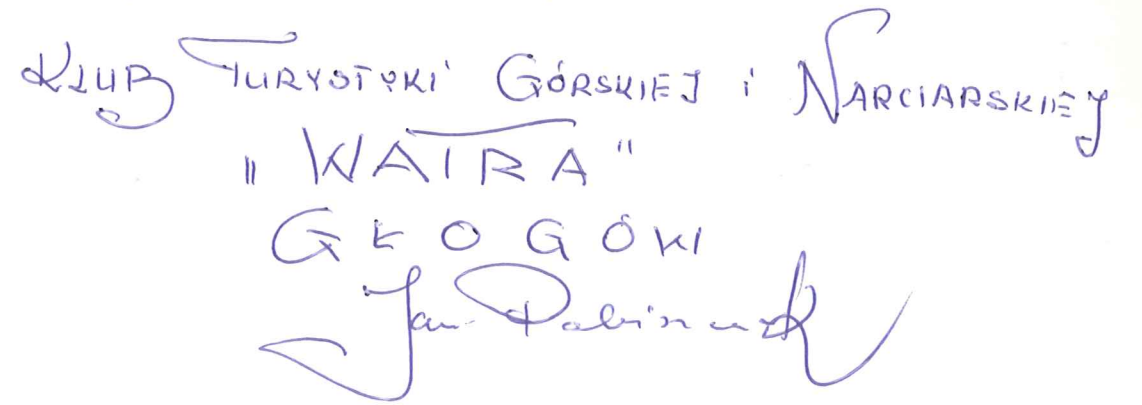 KLUB TURYSTYKI GÓRSKIEJ i NARCIARSKIEJ
„WATRA"
GŁOGÓW
Jan